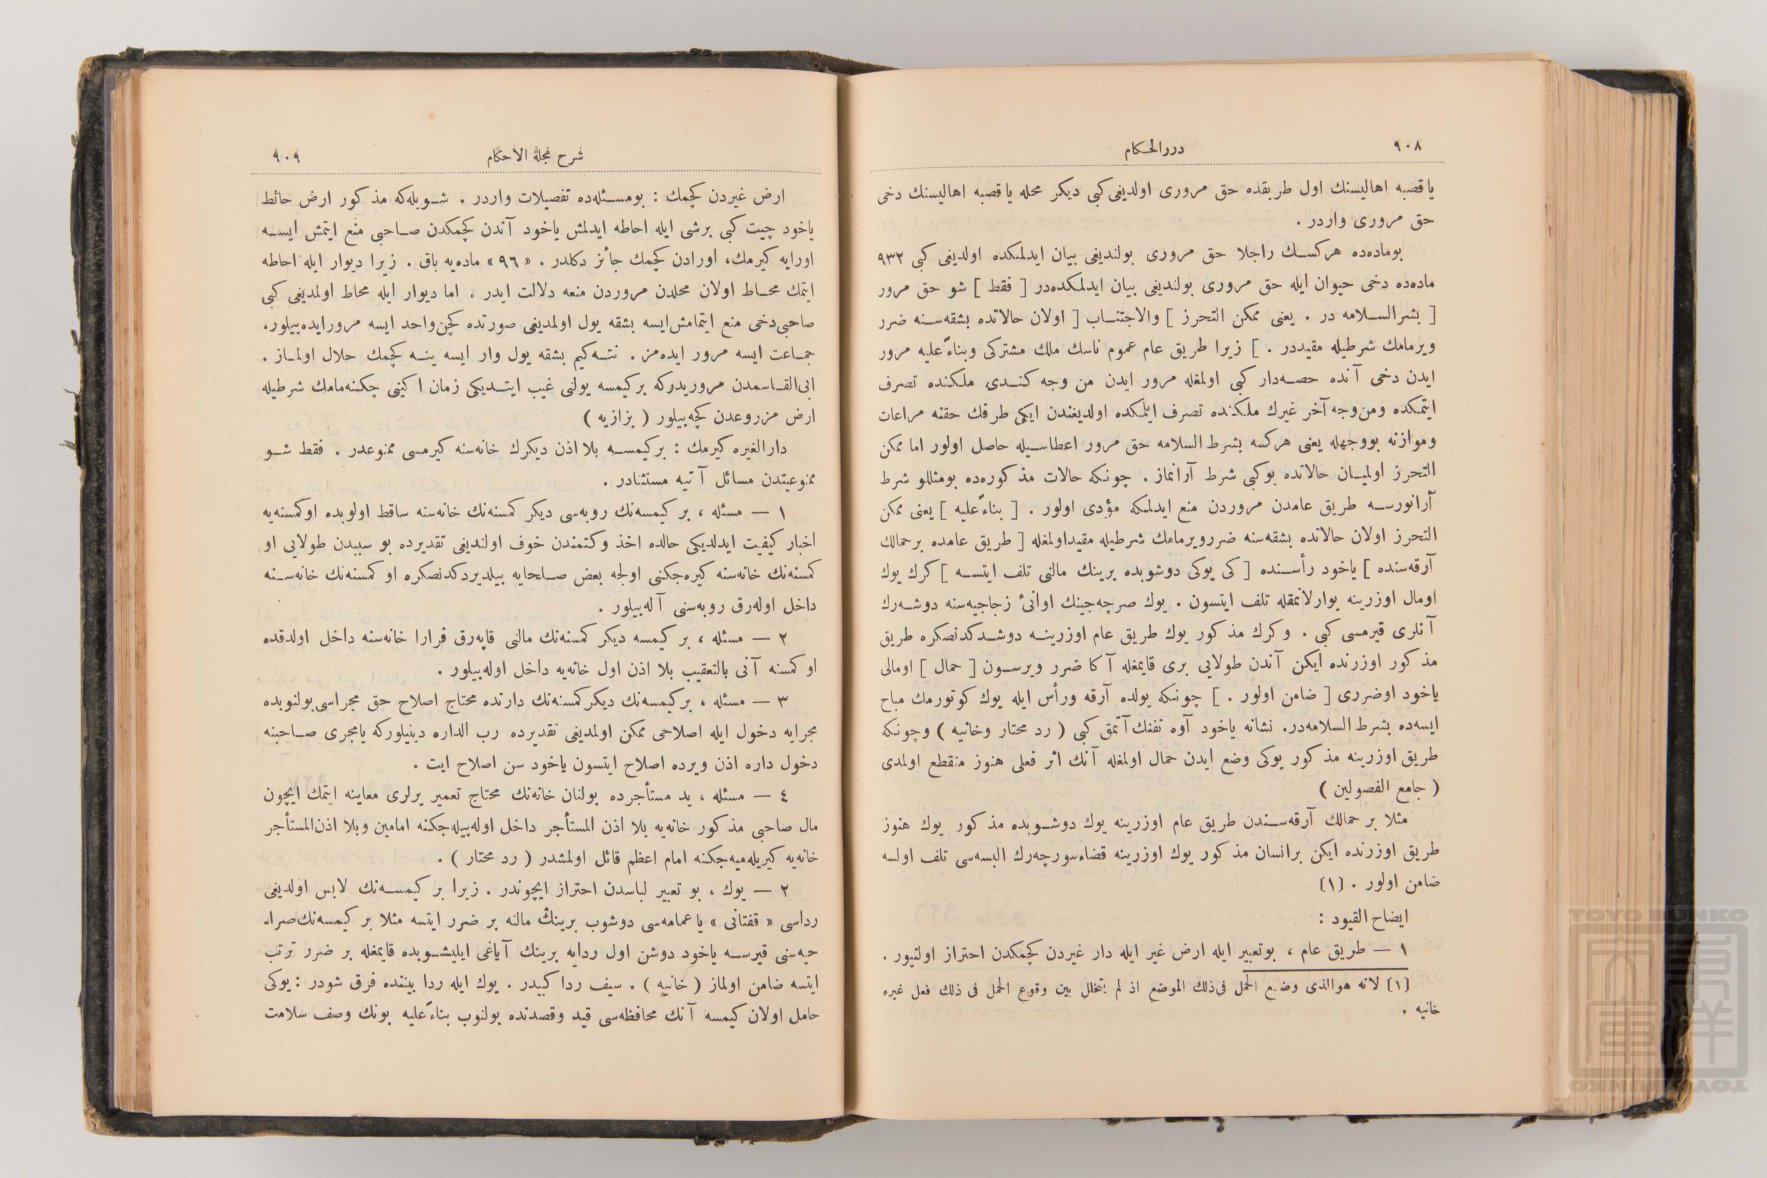 ٩٠٨
دررالحكام
يا قصبه اهاليسنك اول طريقده حق مرورى اولديغى كبى ديكر محله يا قصبه اهاليسنك دخى
حق مرورى واردر .
بوماده‌ده هركسك راجلا حق مرورى بولنديغى بيان ايدلمكده اولديغى كبى ٩٣٢
ماده‌ده دخى حيوان ايله حق مرورى بولنديغى بيان ايدلمكده‌در [ فقط ] شو حق مرور
[ بشرالسلامه در . يعنى ممكن التحرز ] والاجتناب [ اولان حالاتده بشقه‌سنه ضرر
ويرمامك شرطيله مقيددر . ] زيرا طريق عام عموم ناسك ملك مشتركى وبناءً عليه مرور
ايدن دخى آنده حصه‌دار كبى اولمغله مرور ايدن من وجه كندى ملكنده تصرف
ايتمكده ومن‌وجه آخر غيرك ملكنده تصرف ايلمكده اولديغندن ايكى طرفك حقنه مراعات
وموازنه بووجهله يعنى هركسه بشرط السلامه حق مرور اعطاسيله حاصل اولور اما ممكن
التحرز اولميان حالاتده بوكبى شرط آرانماز . چونكه حالات مذكوره‌ده بومثللو شرط
آرانورسه طريق عامدن مروردن منع ايدلمكه مؤدى اولور . [ بناءً عليه ] يعنى ممكن
التحرز اولان حالاتده بشقه‌سنه ضررويرمامك شرطيله مقيداولمغله [ طريق عامده برحمالك
آرقه‌سنده ] ياخود رأسنده [ كى يوكى دوشوبده برينك مالنى تلف ايتسه ] كرك يوك
اومال اوزرينه يوارلانمقله تلف ايتسون . يوك صرچه‌جينك اوانئ زجاجيه‌سنه دوشه‌رك
آنلرى قيرمسى كبى . وكرك مذكور يوك طريق عام اوزرينه دوشدكدنصكره طريق
مذكور اوزرنده ايكن آندن طولايى برى قايمغله آكا ضرر ويرسون [ حمال ] اومالى
ياخود اوضررى [ ضامن اولور . ] چونكه يولده آرقه ورأس ايله يوك كوتورمك مباح
ايسه‌ده بشرط السلامه‌در. نشانه ياخود آوه تفنك آتمق كبى ( رد محتار وخانيه ) وچونكه
طريق اوزرينه مذكور يوكى وضع ايدن حمال اولمغله آنك اثر فعلى هنوز منقطع اولمدى
( جامع الفصولين )
مثلا بر حمالك آرقه‌سندن طريق عام اوزرينه يوك دوشوبده مذكور يوك هنوز
طريق اوزرنده ايكن برانسان مذكور يوك اوزرينه قضاء سورچه‌رك البسه‌سى تلف اولسه
ضامن اولور . (١)
ايضاح القيود :
١ — طريق عام ، بوتعبير ايله ارض غير ايله دار غيردن كچمكدن احتراز اولنيور .
(١) لانه هوالذى وضع الحمل فى‌ذلك الموضع اذ لم يتخلل بين وقوع الحمل فى ذلك فعل غيره
خانيه .
شرح مجلة الاحكام
٩٠٩
ارض غيردن كچمك : بومسئله‌ده تفصيلات واردر . شويله‌كه مذكور ارض حائط
ياخود چيت كبى برشى ايله احاطه ايدلمش ياخود آندن كچمكدن صاحبى منع ايتمش ايسه
اورايه كيرمك، اورادن كچمك جائز دكلدر . « ٩٦ » ماده‌يه باق . زيرا ديوار ايله احاطه
ايتمك محاط اولان محلدن مروردن منعه دلالت ايدر . اما ديوار ايله محاط اولمديغى كبى
صاحبى‌دخى منع ايتمامش‌ايسه بشقه يول اولمديغى صورتده كچن‌واحد ايسه مرورايده‌بيلور،
جماعت ايسه مرور ايده‌مز . نته‌كيم بشقه يول وار ايسه ينه كچمك حلال اولماز .
ابى‌القاسمدن مرويدركه بركيمسه يولنى غيب ايتديكى زمان اكينى چكنه‌مامك شرطيله
ارض مزروعدن كچه‌بيلور ( بزازيه )
دارالغيره كيرمك : بركيمسه بلا اذن ديكرك خانه‌سنه كيرمسى ممنوعدر . فقط شو
ممنوعيتدن مسائل آتيه مستثنادر .
١ — مسئله ، بر كيمسه‌نك روبه‌سى ديكر كمسنه‌نك خانه‌سنه ساقط اولوبده اوكمسنه‌يه
اخبار كيفيت ايدلديكى حالده اخذ وكتمندن خوف اولنديغى تقديرده بو سببدن طولايى او
كمسنه‌نك خانه‌سنه كيره‌جكنى اولجه بعض صلحايه بيلديردكدنصكره او كمسنه‌نك خانه‌سنه
داخل اوله‌رق روبه‌سنى آله‌بيلور .
٢ — مسئله ، بر كيمسه ديكر كمسنه‌نك مالنى قاپه‌رق فرارا خانه‌سنه داخل اولدقده
او كمسنه آنى بالتعقيب بلا اذن اول خانه‌يه داخل اوله‌بيلور .
٣ — مسئله ، بركيمسه‌نك ديكركمسنه‌نك دارنده محتاج اصلاح حق مجراسى‌بولنوبده
مجرايه دخول ايله اصلاحى ممكن اولمديغى تقديرده رب الداره دينيلوركه يامجرى صاحبنه
دخول داره اذن ويرده اصلاح ايتسون ياخود سن اصلاح ايت .
٤ — مسئله ، يد مستأجرده بولنان خانه‌نك محتاج تعمير يرلرى معاينه ايتمك ايچون
مال صاحبى مذكور خانه‌يه بلا اذن المستأجر داخل اوله‌بيله‌جكنه امامين وبلا اذن‌المستأجر
خانه‌يه كيريله‌ميه‌جكنه امام اعظم قائل اولمشدر ( رد محتار ) .
٢ — يوك ، بو تعبير لباسدن احتراز ايچوندر . زيرا بر كيمسه‌نك لابس اولديغى
رداسى « قفتانى » يا عمامه‌سى دوشوب برينك مالنه بر ضرر ايتسه مثلا بر كيمسه‌نك‌صراه
حيه‌سنى قيرسه ياخود دوشن اول ردايه برينك آياغى ايليشوبده قايمغله بر ضرر ترتب
ايتسه ضامن اولماز ( خانيه ) . سيف ردا كبيدر . يوك ايله ردا بيننده فرق شودر : يوكى
حامل اولان كيمسه آنك محافظه‌سى قيد وقصدنده بولنوب بناءً عليه بونك وصف سلامت
TOYO BUNKO
東洋
文庫
TOYO BUNKO